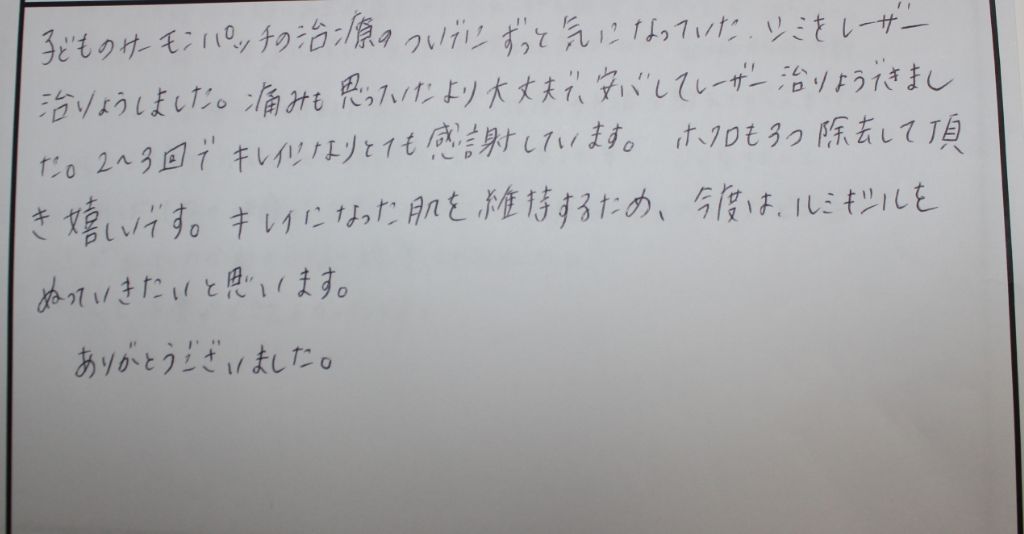 子どものサーモンパッチの治療のついでにずっと気になっていた、シミをレーザー
治りょうしました。痛みも思っていたより大丈夫で、安心してレーザー治りょうできまし
た。2～3回でキレイになりとても感謝しています。 ホクロも3つ除去して頂
き嬉しいです。キレイになった肌を維持するため、今度は、ルミギンルを
ぬっていきたいと思います。
ありがとうございました。